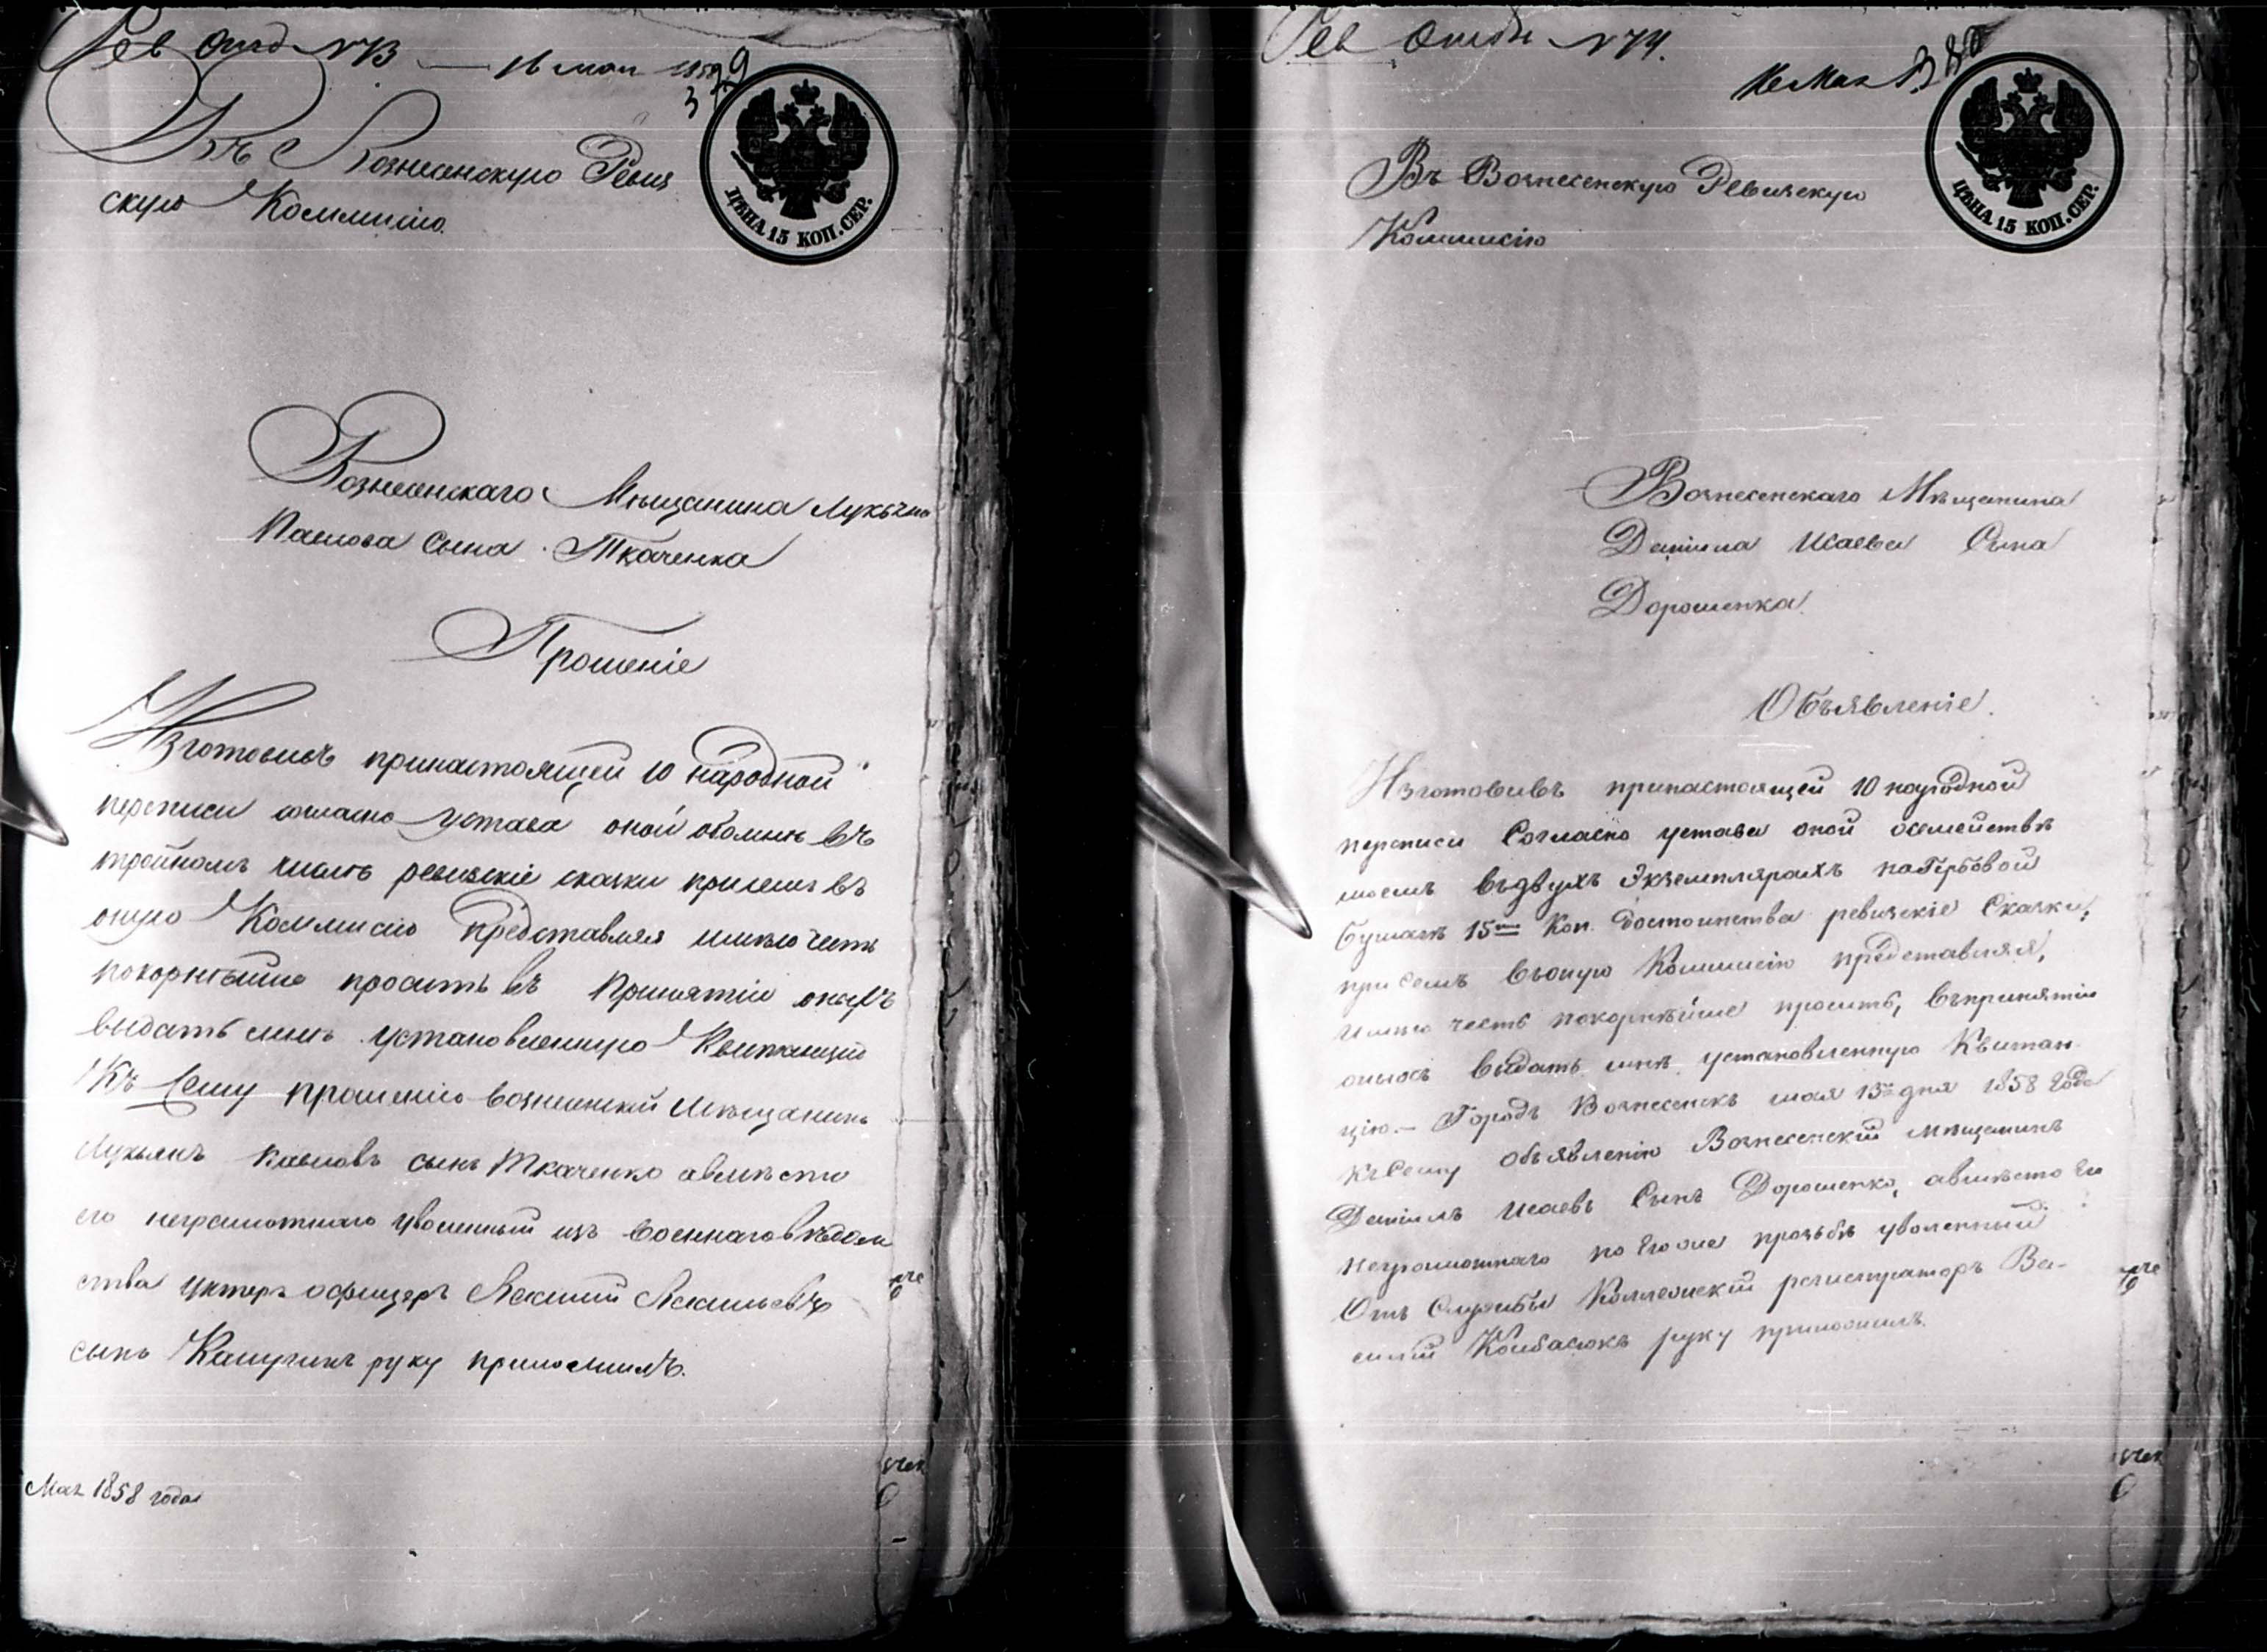 Рев Отд № 73 — 16 мая 1858
379
Въ Вознесенскую Ревиз
скую Коммисію.
ЦѢНА 15 КОП. СЕР.
Вознесенскаго Мѣщанина Лукьяна
Павлова сына Ткаченка
Прошеніе
Изготовивъ принастоящей 10 народной
переписи согласно устава оной обомнѣ въ
тройномъ числѣ ревизскіе сказки присемъ въ
оную Коммисію представляя имѣю честь
покорнѣйше просить въ принятіи оныхъ
выдать мнѣ установленную Квитанцію
Къ сему прошенію вознесенскій Мѣщанинъ
Лукьянъ Павловъ сынъ Ткаченко авмѣсто
его неграмотнаго уволенный изъ военнаго вѣдом
ства унтеръ офицеръ
сынъ руку приложилъ.
Мая 1858 года
Рев Отдѣ № 74.
16 Мая
380
Въ Вознесенскую Ревизскую
Коммисію
ЦѢНА 15 КОП. СЕР.
Вознесенскаго Мѣщанина
Даніила Исаева Сына
Дорошенка.
Объявленіе.
Изготовивъ принастоящей 10 народной
переписи Согласно устава оной осемействѣ
моемъ въдвухъ Экземплярахъ наГербовой
бумагѣ 15ти Коп. достоинства ревизскіе Сказки,
при семъ въоную Коммисію представляя,
имѣю честь покорнѣйше просить, въпринятіи
оныхъ выдать мнѣ установленную Квитан
цію.— Городъ Вознесенскъ мая 13го дня 1858 года
къ Сему объявленію Вознесенскій мѣщанинъ
Даніилъ Исаевъ Сынъ Дорошенко, авмѣсто Его
неграмотнаго по Его же прозьбѣ уволенный
Отъ Службы Коллежскій регистраторъ Ва-
силій Колбасюкъ руку приложилъ.